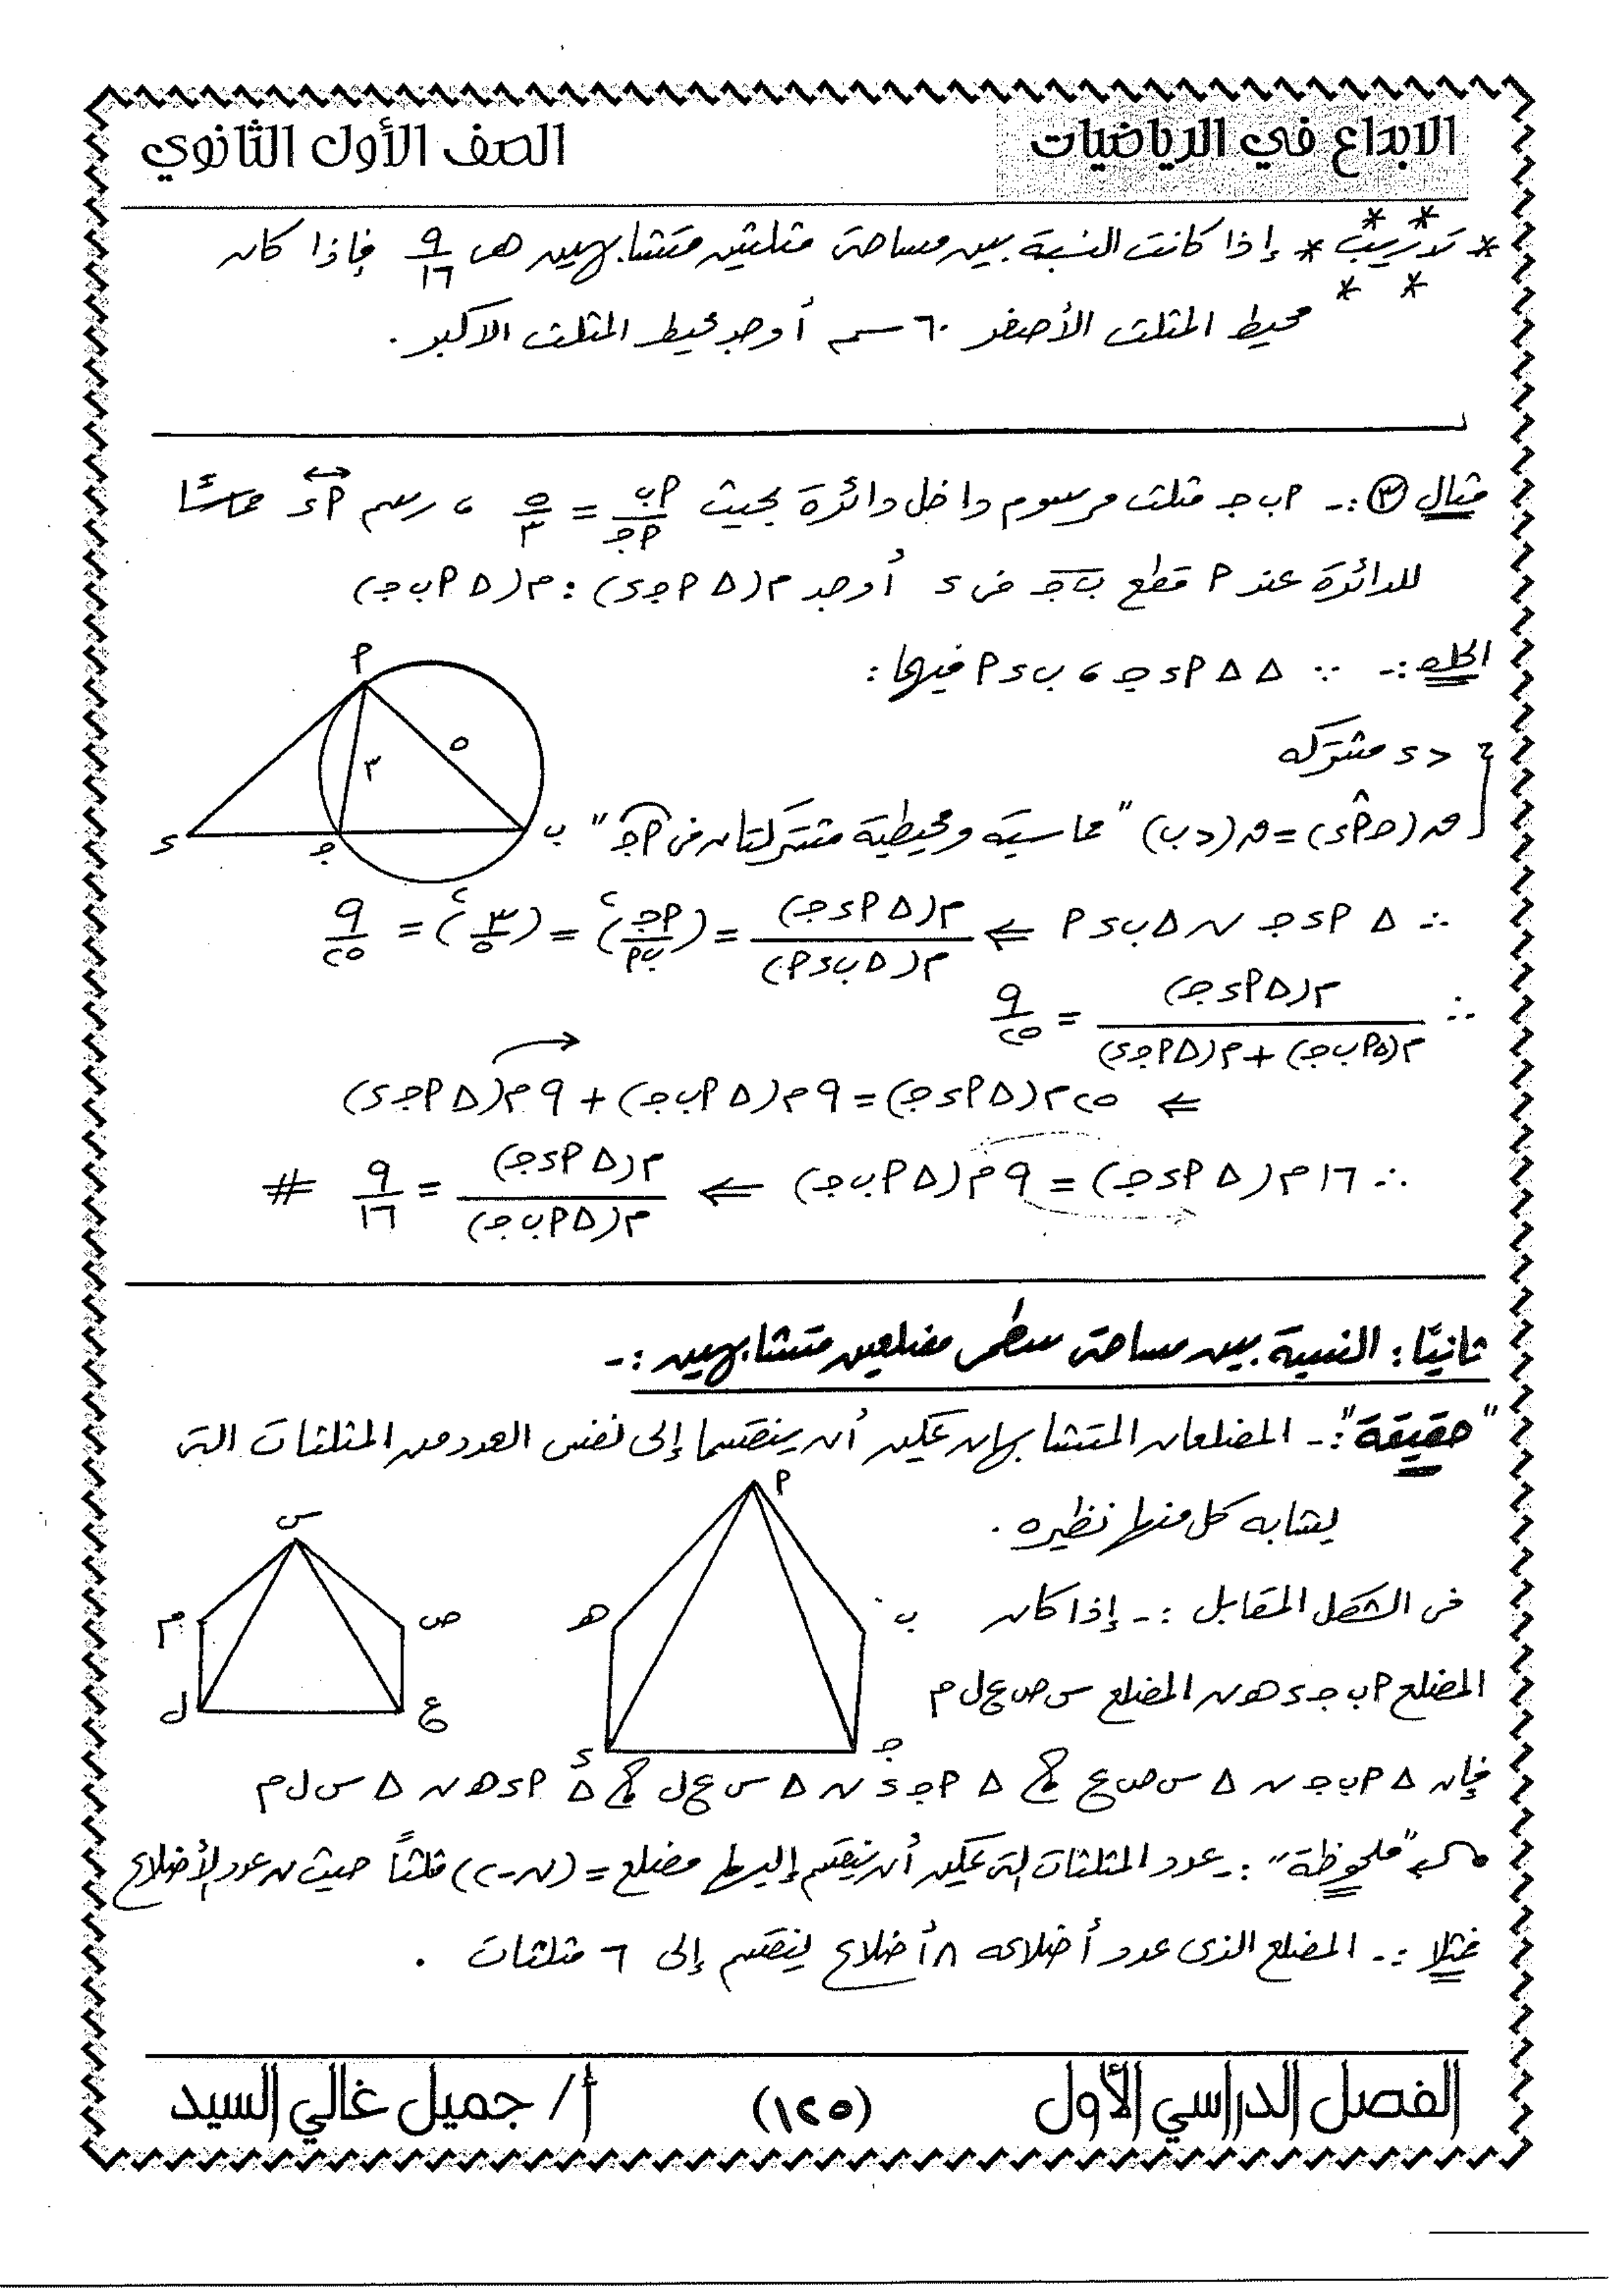 الابداع في الرياضيات
الصف الأول الثانوي
* تدريب * إذا كانت النسبة بين مساحتى مثلثين متشابهين هى ٩/١٦ فإذا كان
محيط المثلث الأصغر ٦٠ سم أوجد محيط المثلث الأكبر .
مثال ③ :- أ ب جـ مثلث مرسوم داخل دائرة بحيث أب/أجـ = ٥/٣ ، رسم أء مماسًا
للدائرة عند أ قطع ب جـ فى ء أوجد م(Δ أ جـ ء) : م(Δ أ ب جـ)
الحل :- ∵ Δ Δ أ ء جـ ، ب ء أ فيهما :
{ > ء مشتركه
ق(جـ أ ء) = ق(> ب) " مماسية ومحيطية مشتركتان فى أجـ "
∴ Δ أ ء جـ ~ Δ ب ء أ ⇐ م(Δ أ ء جـ)/م(Δ ب ء أ) = (أجـ/ب أ)٢ = (٣/٥)٢ = ٩/٢٥
∴ م(Δ أ ء جـ)/(م(Δ أ ب جـ) + م(Δ أ جـ ء)) = ٩/٢٥
⇐ ٢٥ م(Δ أ ء جـ) = ٩ م(Δ أ ب جـ) + ٩ م(Δ أ جـ ء)
∴ ١٦ م(Δ أ ء جـ) = ٩ م(Δ أ ب جـ) ⇐ م(Δ أ ء جـ)/م(Δ أ ب جـ) = ٩/١٦ #
أ
٥
٣
ء
جـ
ب
ثانيًا : النسبة بين مساحتى سطحى مضلعين متشابهين :-
"حقيقة" :- المضلعان المتشابهان يمكن أن ينقسما إلى نفس العدد من المثلثات التى
يشابه كل منها نظيره .
فى الشكل المقابل :- إذا كان
المضلع أ ب جـ ء هـ ~ المضلع س ص ع ل م
أ
ب
جـ
ء
هـ
س
ص
ع
ل
م
فإن Δ أ ب جـ ~ Δ س ص ع ، Δ أ جـ ء ~ Δ س ع ل ، Δ أ ء هـ ~ Δ س ل م
"ملحوظة" :- عدد المثلثات التى يمكن أن ينقسم إليها مضلع = (ن - ٢) مثلثاً حيث ن عدد الأضلاع
فمثلا :- المضلع الذى عدد أضلاعه ٨ أضلاع ينقسم إلى ٦ مثلثات .
الفصل الدراسي الأول
(١٢٥)
أ/ جميل غالي السيد